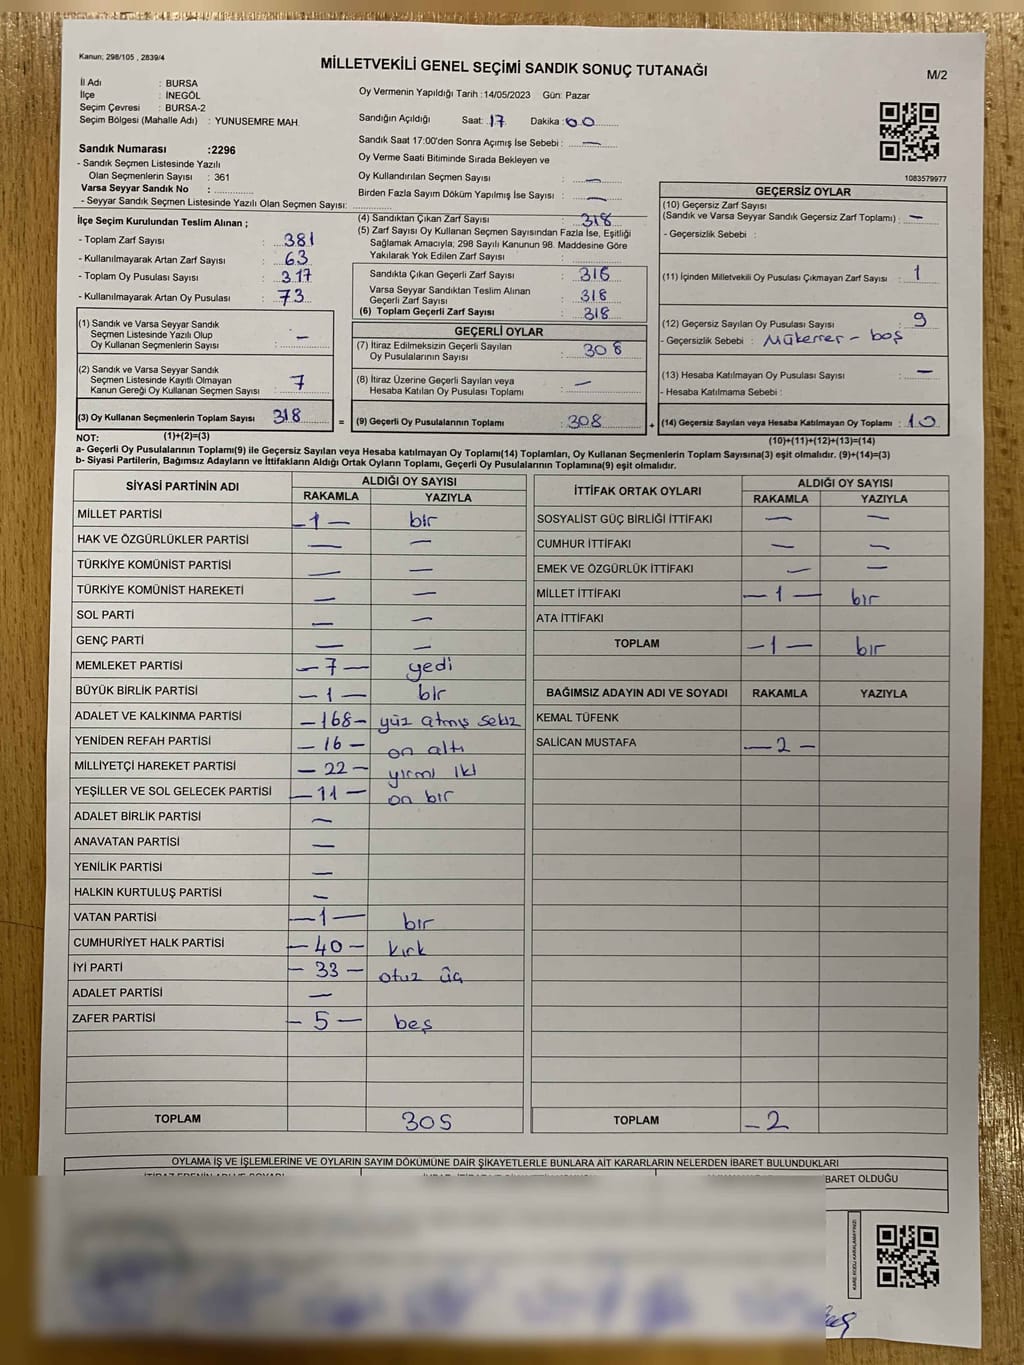 Kanun; 298/105 , 2839/4
MİLLETVEKİLİ GENEL SEÇİMİ SANDIK SONUÇ TUTANAĞI
M/2
İl Adı : BURSA
İlçe : İNEGÖL
Seçim Çevresi : BURSA-2
Seçim Bölgesi (Mahalle Adı) : YUNUSEMRE MAH.
Oy Vermenin Yapıldığı Tarih :14/05/2023 Gün: Pazar
Sandığın Açıldığı Saat: 17 Dakika: 00
Sandık Saat 17:00'den Sonra Açımış İse Sebebi : —
Oy Verme Saati Bitiminde Sırada Bekleyen ve
Oy Kullandırılan Seçmen Sayısı : —
Birden Fazla Sayım Döküm Yapılmış İse Sayısı : —
1083579977
Sandık Numarası :2296
- Sandık Seçmen Listesinde Yazılı
Olan Seçmenlerin Sayısı : 361
Varsa Seyyar Sandık No :
- Seyyar Sandık Seçmen Listesinde Yazılı Olan Seçmen Sayısı:
İlçe Seçim Kurulundan Teslim Alınan ;
- Toplam Zarf Sayısı : 381
- Kullanılmayarak Artan Zarf Sayısı : 63
- Toplam Oy Pusulası Sayısı : 317
- Kullanılmayarak Artan Oy Pusulası : 73
(1) Sandık ve Varsa Seyyar Sandık
Seçmen Listesinde Yazılı Olup
Oy Kullanan Seçmenlerin Sayısı : —
(2) Sandık ve Varsa Seyyar Sandık
Seçmen Listesinde Kayıtlı Olmayan
Kanun Gereği Oy Kullanan Seçmen Sayısı : 7
(3) Oy Kullanan Seçmenlerin Toplam Sayısı 318 =
(1)+(2)=(3)
(4) Sandıktan Çıkan Zarf Sayısı : 318
(5) Zarf Sayısı Oy Kullanan Seçmen Sayısından Fazla İse, Eşitliği
Sağlamak Amacıyla; 298 Sayılı Kanunun 98. Maddesine Göre
Yakılarak Yok Edilen Zarf Sayısı :
Sandıkta Çıkan Geçerli Zarf Sayısı : 316
Varsa Seyyar Sandıktan Teslim Alınan
Geçerli Zarf Sayısı : 318
(6) Toplam Geçerli Zarf Sayısı : 318
GEÇERLİ OYLAR
(7) İtiraz Edilmeksizin Geçerli Sayılan
Oy Pusulalarının Sayısı : 308
(8) İtiraz Üzerine Geçerli Sayılan veya
Hesaba Katılan Oy Pusulası Toplamı : —
(9) Geçerli Oy Pusulalarının Toplamı : 308 +
GEÇERSİZ OYLAR
(10) Geçersiz Zarf Sayısı
(Sandık ve Varsa Seyyar Sandık Geçersiz Zarf Toplamı) : —
- Geçersizlik Sebebi :
(11) İçinden Milletvekili Oy Pusulası Çıkmayan Zarf Sayısı : 1
(12) Geçersiz Sayılan Oy Pusulası Sayısı : 9
- Geçersizlik Sebebi : Mükerrer - boş
(13) Hesaba Katılmayan Oy Pusulası Sayısı : —
- Hesaba Katılmama Sebebi :
(14) Geçersiz Sayılan veya Hesaba Katılmayan Oy Toplamı : 10
(10)+(11)+(12)+(13)=(14)
NOT:
a- Geçerli Oy Pusulalarının Toplamı(9) ile Geçersiz Sayılan veya Hesaba katılmayan Oy Toplamı(14) Toplamları, Oy Kullanan Seçmenlerin Toplam Sayısına(3) eşit olmalıdır. (9)+(14)=(3)
b- Siyasi Partilerin, Bağımsız Adayların ve İttifakların Aldığı Ortak Oyların Toplamı, Geçerli Oy Pusulalarının Toplamına(9) eşit olmalıdır.
SİYASİ PARTİNİN ADI ALDIĞI OY SAYISI
RAKAMLA YAZIYLA
MİLLET PARTİSİ —1— bir
HAK VE ÖZGÜRLÜKLER PARTİSİ — —
TÜRKİYE KOMÜNİST PARTİSİ — —
TÜRKİYE KOMÜNİST HAREKETİ — —
SOL PARTİ — —
GENÇ PARTİ — —
MEMLEKET PARTİSİ —7— yedi
BÜYÜK BİRLİK PARTİSİ —1— bir
ADALET VE KALKINMA PARTİSİ —168— yüz atmış sekiz
YENİDEN REFAH PARTİSİ —16— on altı
MİLLİYETÇİ HAREKET PARTİSİ —22— yirmi iki
YEŞİLLER VE SOL GELECEK PARTİSİ —11— on bir
ADALET BİRLİK PARTİSİ —
ANAVATAN PARTİSİ —
YENİLİK PARTİSİ —
HALKIN KURTULUŞ PARTİSİ —
VATAN PARTİSİ —1— bir
CUMHURİYET HALK PARTİSİ —40— kırk
İYİ PARTİ —33— otuz üç
ADALET PARTİSİ —
ZAFER PARTİSİ —5— beş
TOPLAM 305
İTTİFAK ORTAK OYLARI ALDIĞI OY SAYISI
RAKAMLA YAZIYLA
SOSYALİST GÜÇ BİRLİĞİ İTTİFAKI — —
CUMHUR İTTİFAKI — —
EMEK VE ÖZGÜRLÜK İTTİFAKI — —
MİLLET İTTİFAKI —1— bir
ATA İTTİFAKI
TOPLAM —1— bir
BAĞIMSIZ ADAYIN ADI VE SOYADI RAKAMLA YAZIYLA
KEMAL TÜFENK
SALİCAN MUSTAFA —2—
TOPLAM —2
OYLAMA İŞ VE İŞLEMLERİNE VE OYLARIN SAYIM DÖKÜMÜNE DAİR ŞİKAYETLERLE BUNLARA AİT KARARLARIN NELERDEN İBARET BULUNDUKLARI
BARET OLDUĞU